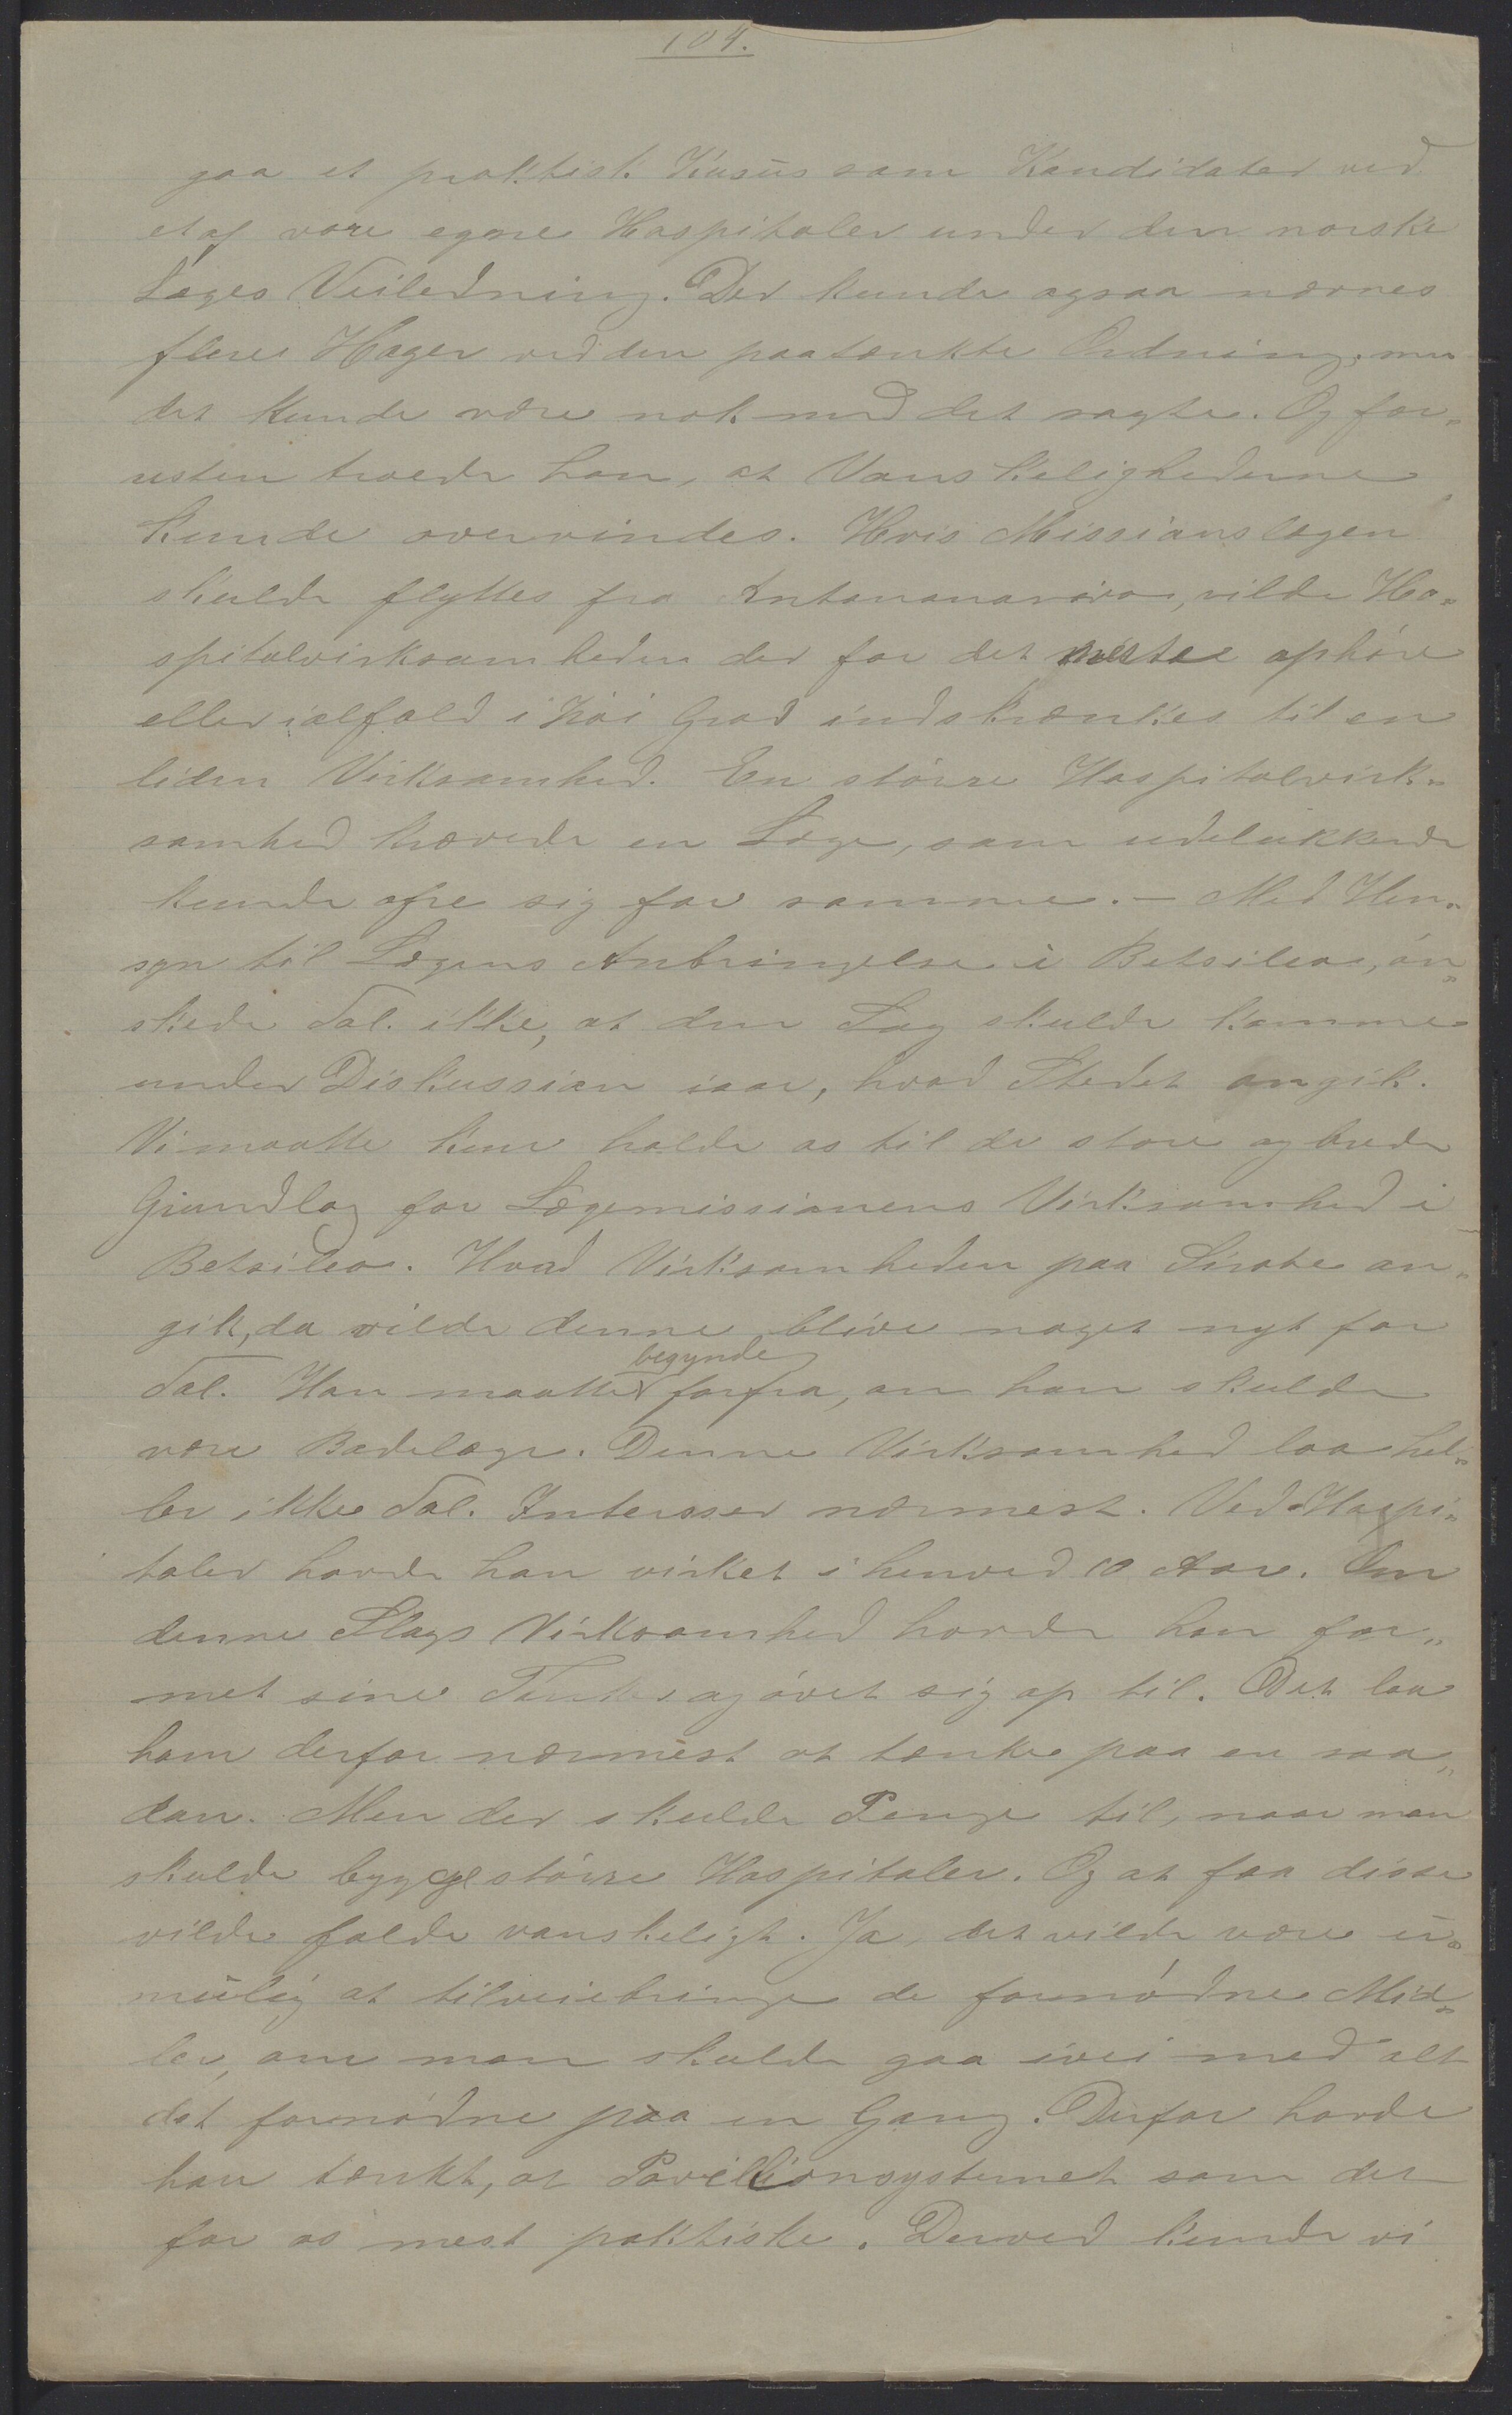 104.
gaa et praktisk Kusus som Kandidater ved
et af vore egne Hospitaler under den norske
Læges Veiledning. Der kunde ogsaa nævnes
flere Hager ved den paatænkte Ordning, men
det kunde være nok med det sagte. Og for„
resten troede han, at Vanskelighederne
kunde overvindes. Hvis Missionslægen
skulde flyttes fra Antananarivo, vilde Ho„
spitalvirksomheden der for det meste ophøre
eller ialfald i høi Grad indskrænkes til en
liden Virksomhed. En større Hospitalvirk„
somhed krævede en Læge, som udelukkende
kunde ofre sig for samme. – Med Hen„
syn til Lægens Anbringelse i Betsileo, øn„
skede Tal. ikke, at den Sag skulde komme
under Diskussion iaar, hvad Stedet angik.
Vi maatte kun holde os til de store og brede
Grundlag for Lægemissionens Virksomhed i
Betsileo. Hvad Virksomheden paa Sirabe an„
gik, da vilde denne blive noget nyt for
Tal. Han maatte begynde forfra, om han skulde
være Badelæge. Denne Virksomhed laa hel„
ler ikke Tal. Interesser nærmest. Ved Hospi„
taler havde han virket i henved 10 Aar. Om
denne Slags Virksomhed havde han for„
met sine Tanker og øvet sig op til. Det laa
ham derfor nærmest at tænke paa en saa„
dan. Men der skulde Penge til, naar man
skulde bygge større Hospitaler. Og at faa disse
vilde falde vanskeligt. Ja, det vilde være u„
mulig at tilveiebringe de fornødne Mid„
ler, om man skulde gaa ivei med alt
det fornødne paa en Gang. Derfor havde
han tænkt, at Pavillionsystemet som det
for os mest paktiske. Derved kunde vi